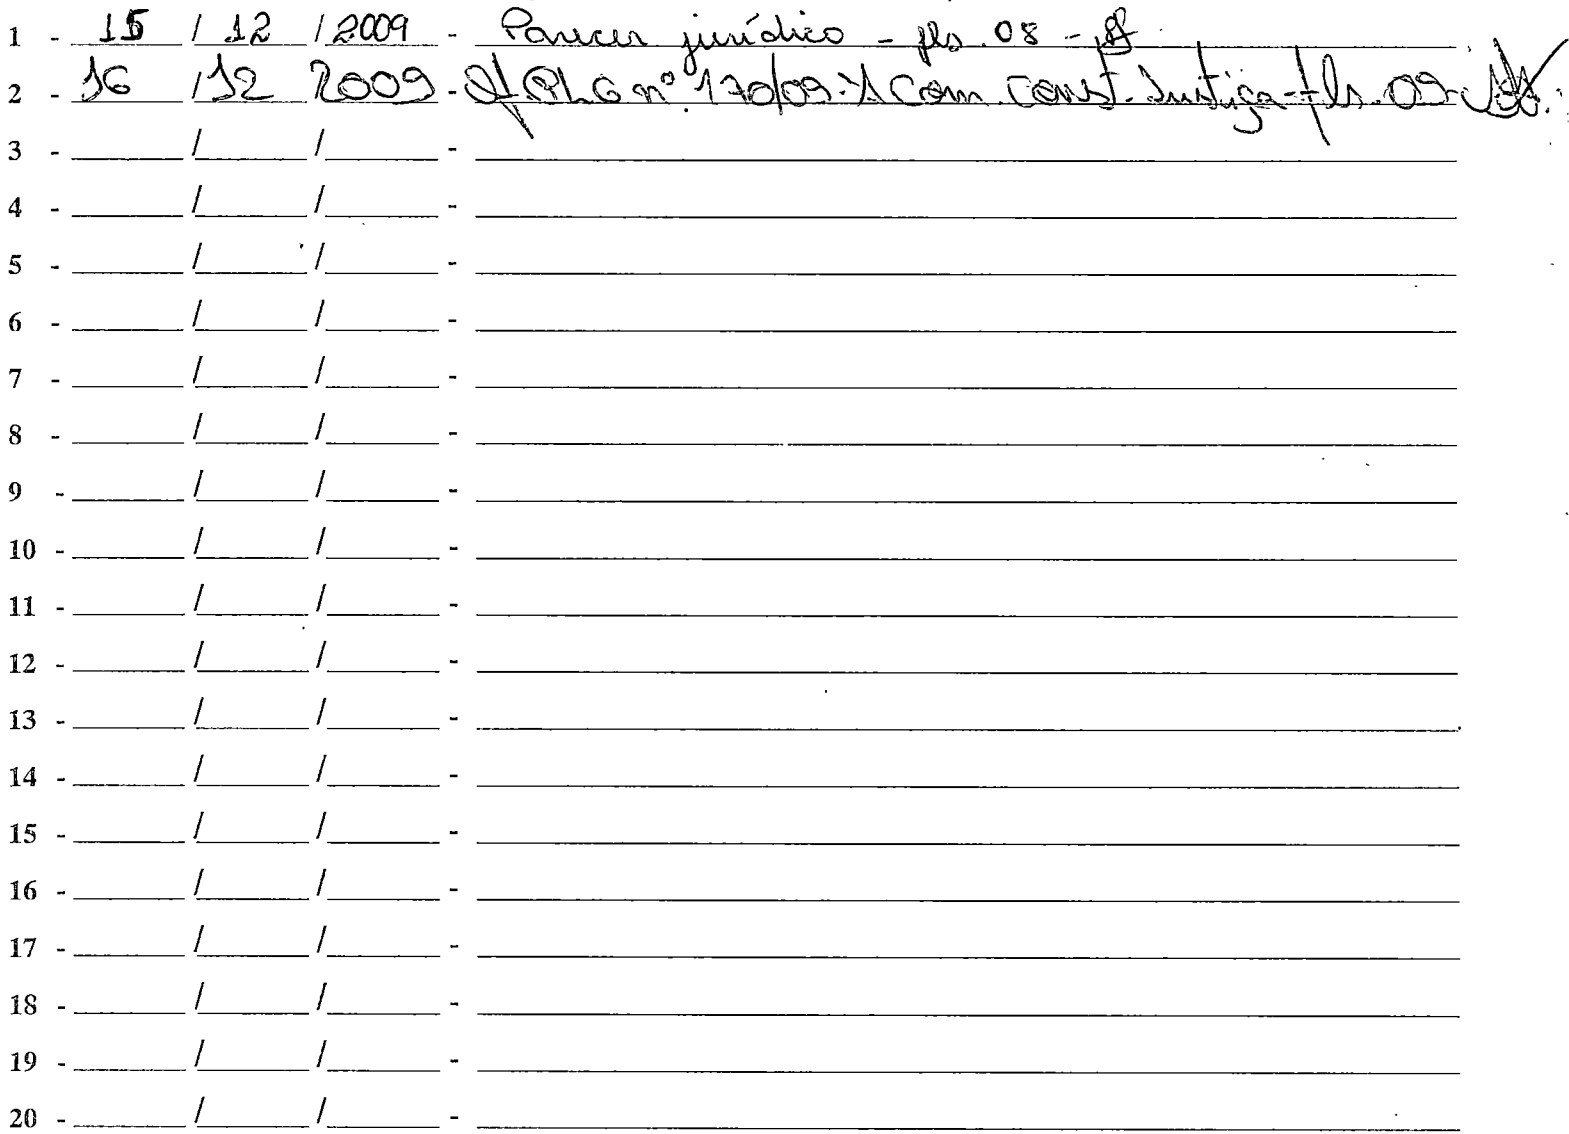 1 - 15 / 12 / 2009 - Parecer jurídico - fls. 08 -
2 - 16 / 12 2009 - Of. PLG nº 170/09 - À Com. Const. Justiça - fls. 09 -
3 - ______ /______ /______ - ______
4 - ______ /______ /______ - ______
5 - ______ /______ /______ - ______
6 - ______ /______ /______ - ______
7 - ______ /______ /______ - ______
8 - ______ /______ /______ - ______
9 - ______ /______ /______ - ______
10 - ______ /______ /______ - ______
11 - ______ /______ /______ - ______
12 - ______ /______ /______ - ______
13 - ______ /______ /______ - ______
14 - ______ /______ /______ - ______
15 - ______ /______ /______ - ______
16 - ______ /______ /______ - ______
17 - ______ /______ /______ - ______
18 - ______ /______ /______ - ______
19 - ______ /______ /______ - ______
20 - ______ /______ /______ - ______